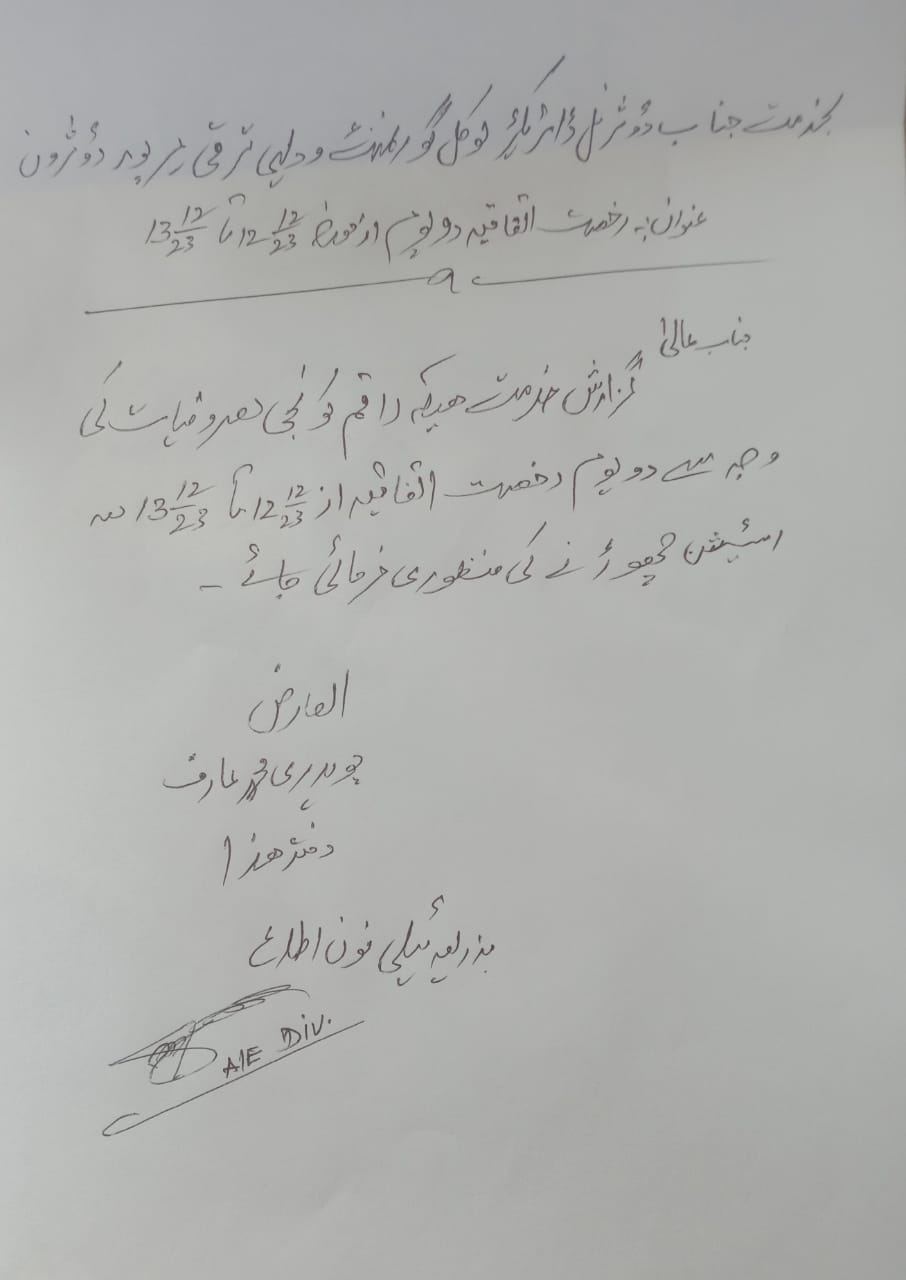 بخدمت جناب ڈویژنل ڈائریکٹر لوکل گورنمنٹ و دیہی ترقی میرپور ڈویژن
عنوان :۔ رخصت اتفاقیہ دو یوم از مورخہ 12 12/23 تا 13 12/23
جناب عالیٰ
گزارش خدمت ہیکہ راقم کو نجی مصروفیات کی
وجہ سے دو یوم رخصت اتفاقیہ از 12 12/23 تا 13 12/23 معہ
اسٹیشن چھوڑنے کی منظوری فرمائی جائے ۔
العارض
چوہدری محمد عارف
دفتر ھذا
بذریعہ ٹیلی فون اطلاع
A/E Div.